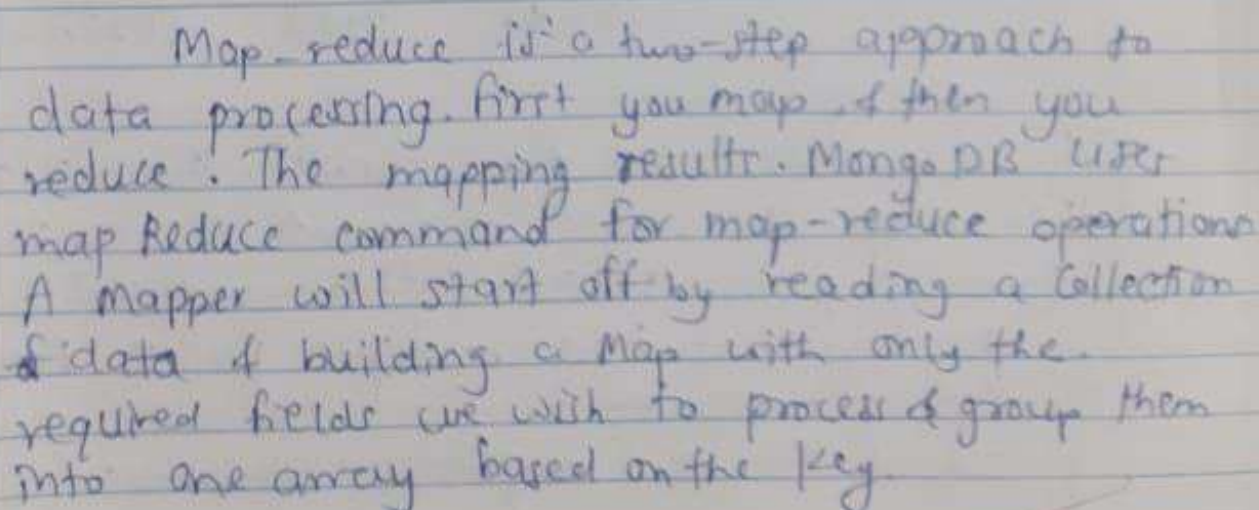 Map-reduce is a two-step approach to
data processing. first you map & then you
reduce. The mapping results. MongoDB uses
map Reduce command for map-reduce operations
A mapper will start off by reading a Collection
& data & building a Map with only the
required fields we wish to process & group them
into one array based on the key